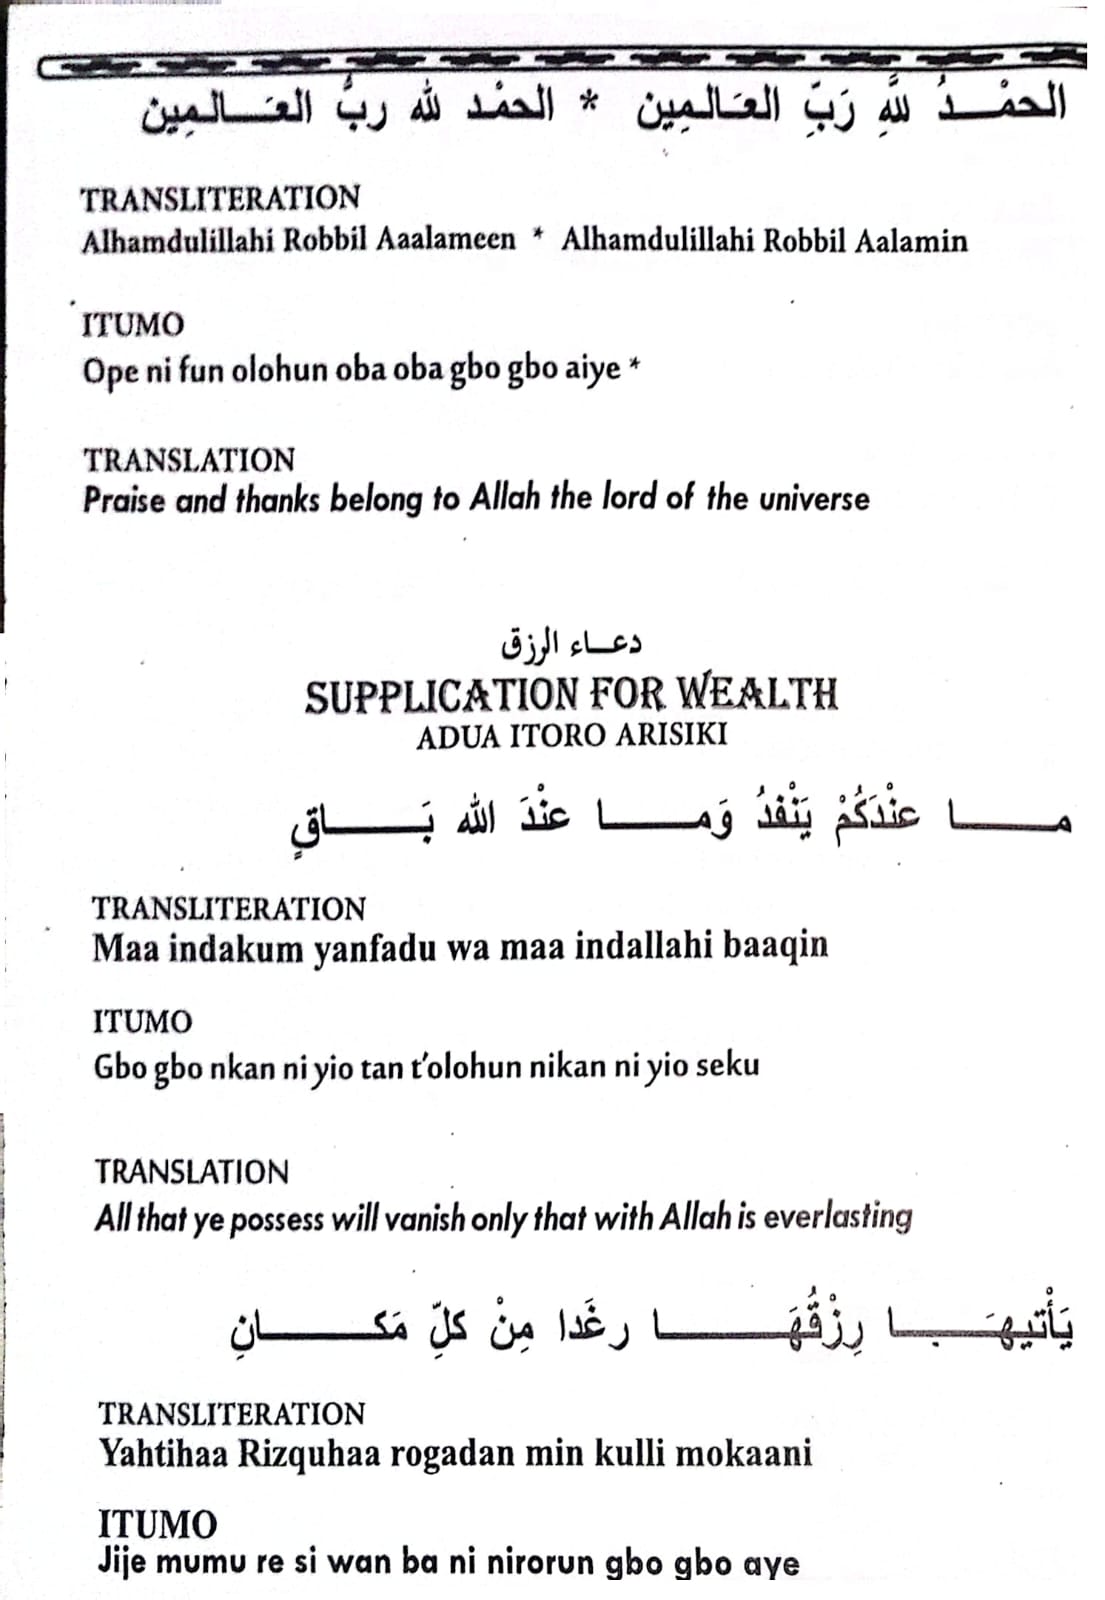 الحمْدُ للَّهِ رَبِّ العَالمِين * الحمْد لله ربُّ العَالمِين
TRANSLITERATION
Alhamdulillahi Robbil Aaalameen * Alhamdulillahi Robbil Aalamin
ITUMO
Ope ni fun olohun oba oba gbo gbo aiye *
TRANSLATION
Praise and thanks belong to Allah the lord of the universe
دعاء الرزق
SUPPLICATION FOR WEALTH
ADUA ITORO ARISIKI
ما عنْدَكُمْ يَنْفدُ وَما عنْدَ الله بَاقٍ
TRANSLITERATION
Maa indakum yanfadu wa maa indallahi baaqin
ITUMO
Gbo gbo nkan ni yio tan t'olohun nikan ni yio seku
TRANSLATION
All that ye possess will vanish only that with Allah is everlasting
يَأْتيهَا رِزْقُهَا رغَدا مِنْ كلِّ مَكانِ
TRANSLITERATION
Yahtihaa Rizquhaa rogadan min kulli mokaani
ITUMO
Jije mumu re si wan ba ni nirorun gbo gbo aye